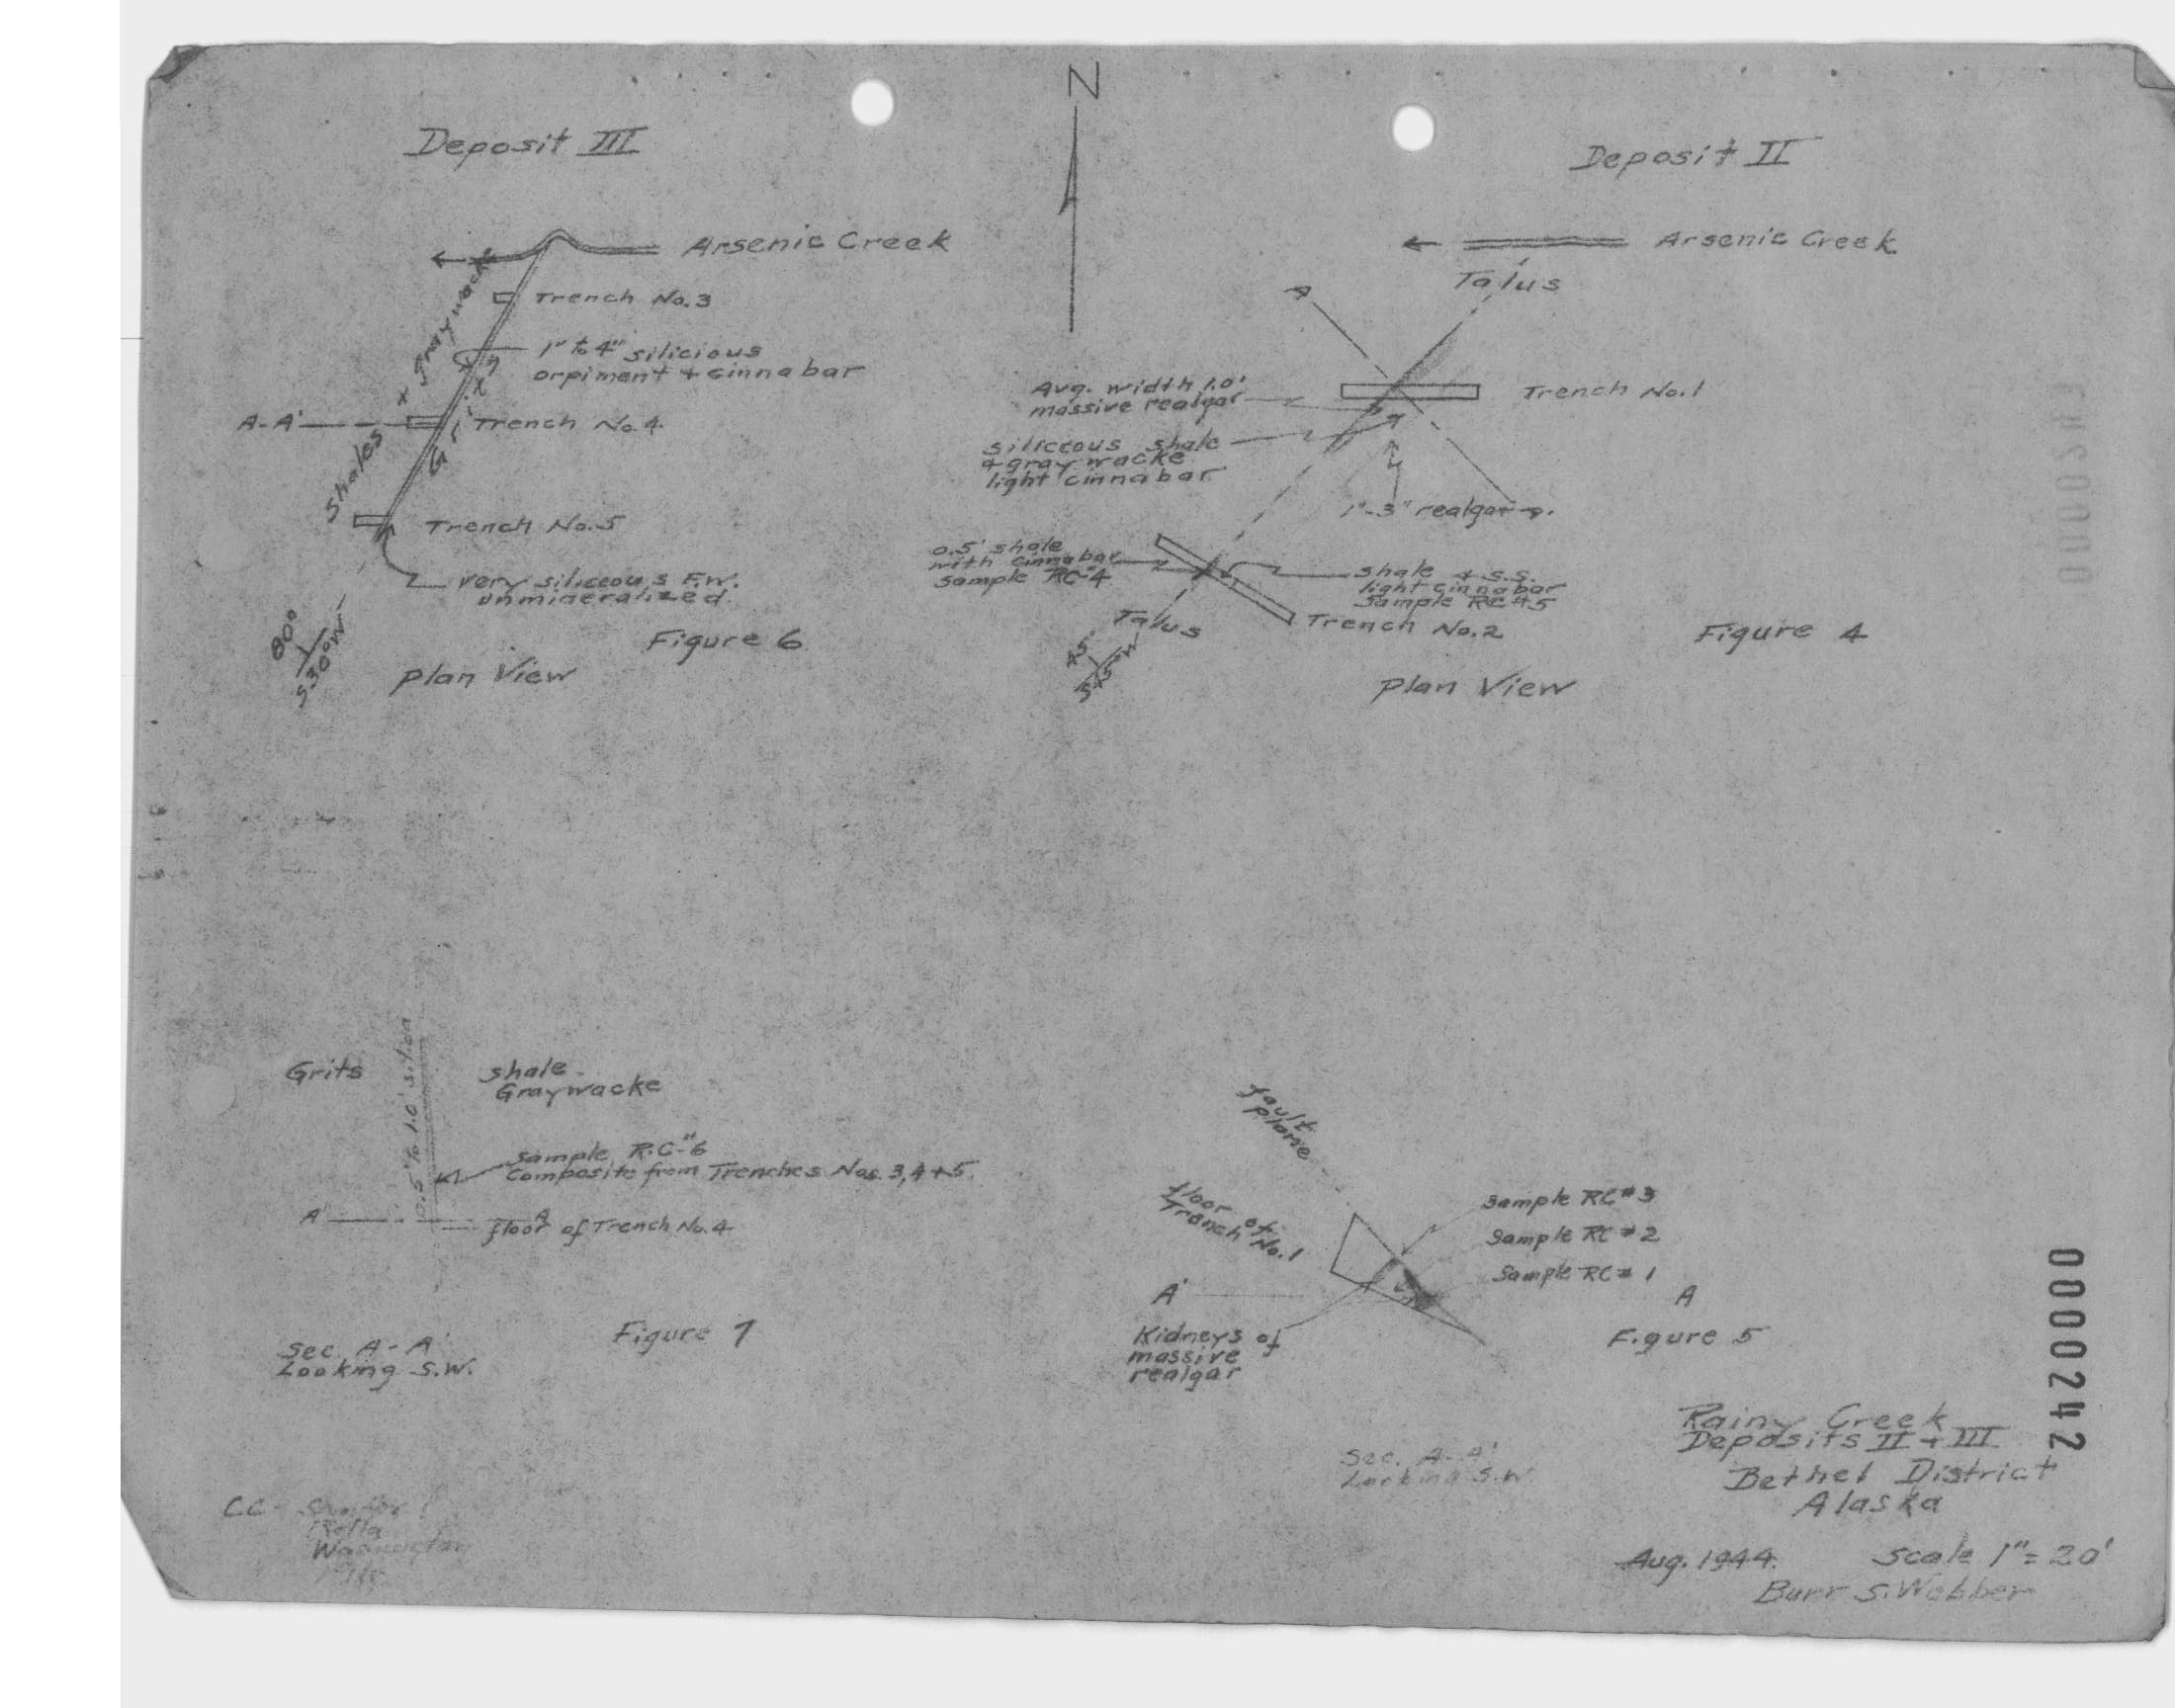 N
Deposit III
Arsenic Creek
Trench No. 3
1" to 4" silicious
orpiment + cinnabar
Shales + Graywacke
Grits
A-A'
Trench No. 4
Trench No. 5
very siliceous F.W.
unmineralized
80°
S30°W
Figure 6
Plan View
Deposit II
Arsenic Creek
Talus
A'
Avg. width 1.0'
massive realgar
Trench No. 1
siliceous shale
+ graywacke
light cinnabar
1"-3" realgar
0.5' shale
with cinnabar
sample RC#4
shale & s.s.
light cinnabar
Sample RC#5
Talus
Trench No. 2
45°
S45°W
Figure 4
Plan View
Grits
0.5' to 1.0' s.
shale
Graywacke
sample RC-#6
Composite from Trenches Nos. 3,4+5.
A'
A
floor of Trench No. 4
Figure 7
Sec. A-A'
Looking S.W.
fault
plane
floor of
Trench No. 1
Sample RC#3
Sample RC#2
Sample RC#1
A'
A
Kidneys of
massive
realgar
Figure 5
Sec. A-A'
Looking S.W.
Rainy Creek
Deposits II + III
Bethel District
Alaska
Aug. 1944.
Scale 1"=20'
Burr S. Webber
0000242
CC-
Rolla
Washington